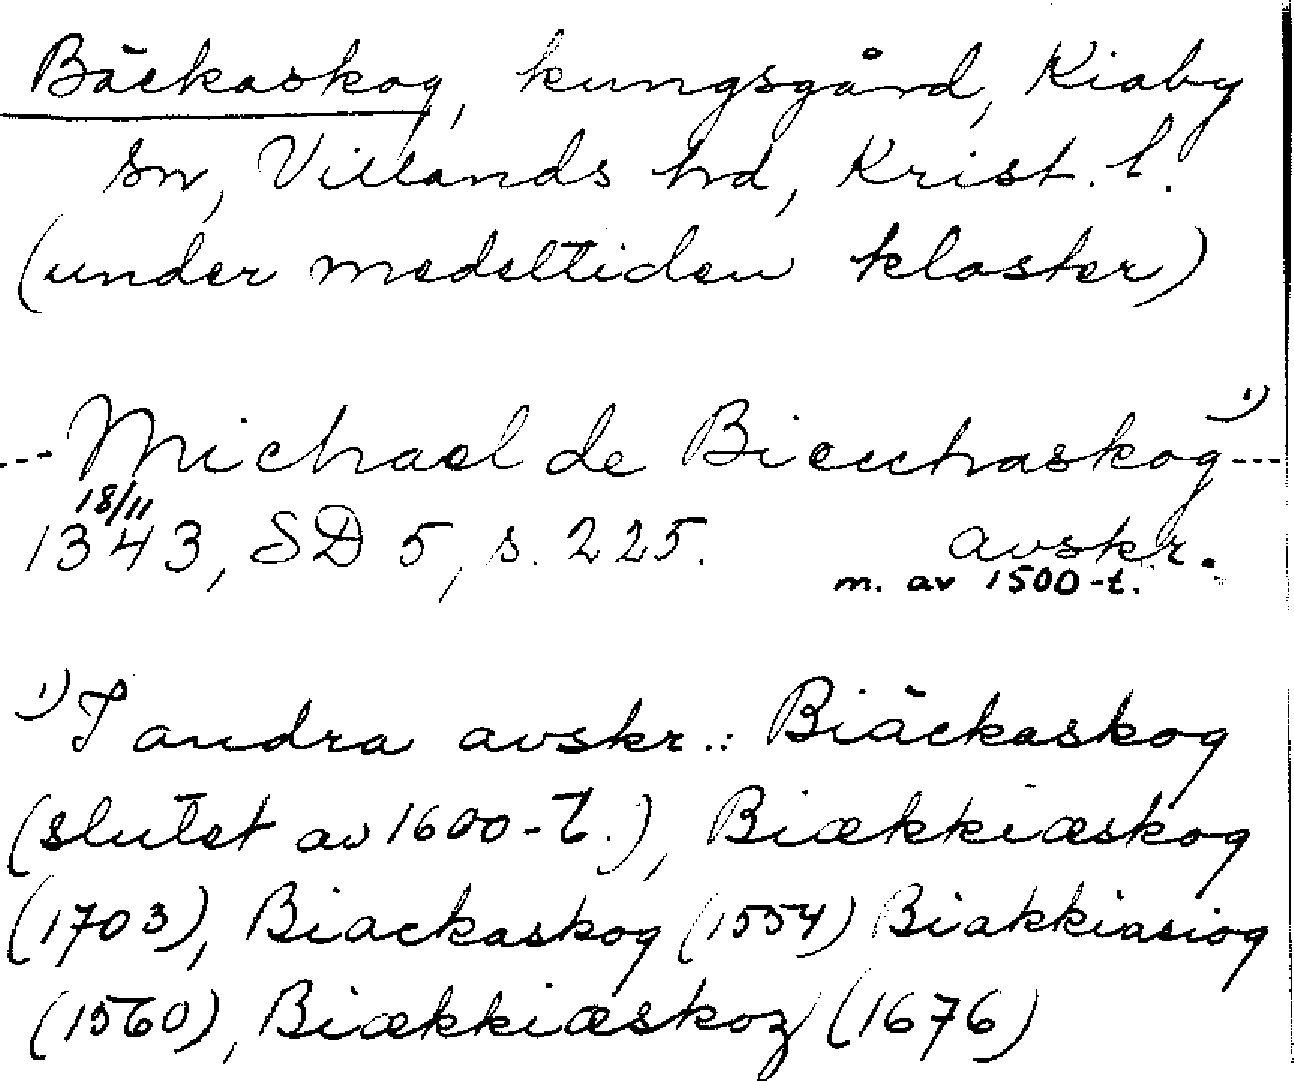 Bäckaskog, kungsgård, Kiaby
sn, Villands hd, Krist. l.
(under medeltiden kloster)
--- Michael de Bieuhaskog 1) ---
18/11
1343, SD 5, s. 225. avskr.
m. av 1500-t.
1) I andra avskr.: Biäckaskog
(slutet av 1600-t.), Biækkiæskog
(1703), Biackaskog (1554) Biakkiasiog
(1560), Biækkiæskoz (1676)